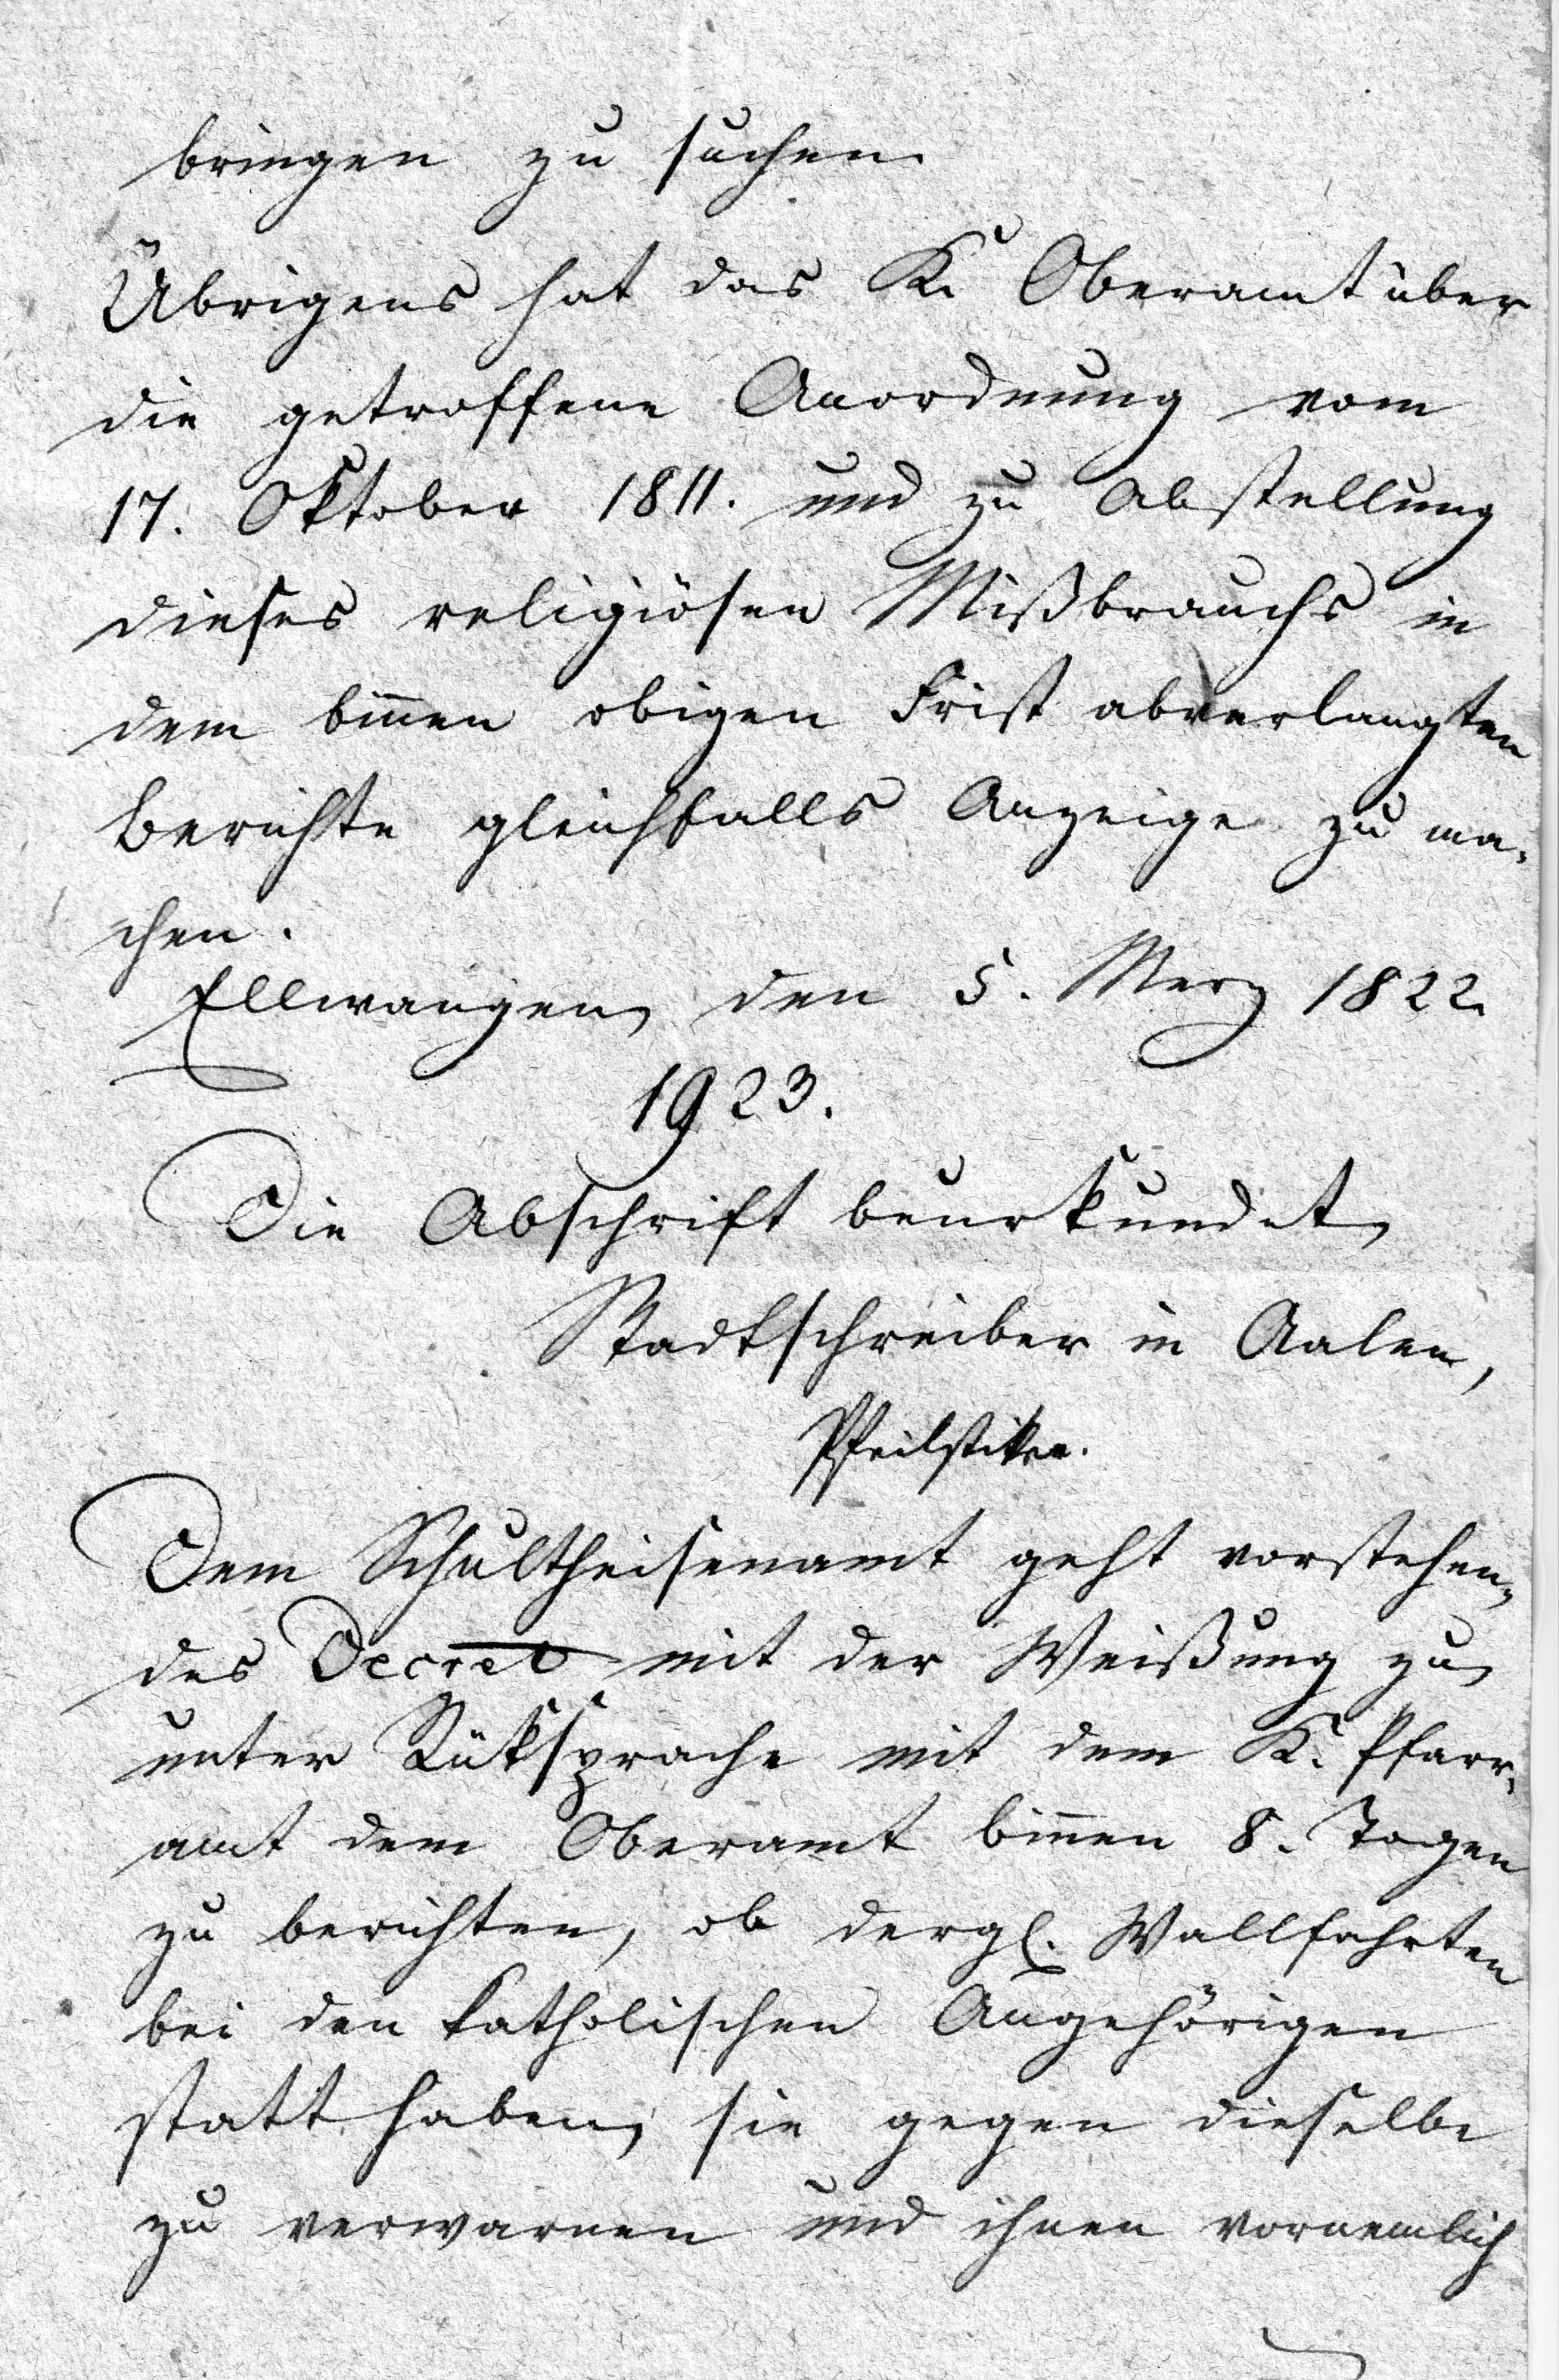 bringen zu suchen.
Übrigens hat das K. Oberamt über
die getroffene Anordnung vom
17. Oktober 1811. und zu Abstellung
dieses religiösen Mißbrauchs in
dem binnen obigen Frist abverlangten
Berichte gleichfalls Anzeige zu ma-
chen.
Ellwangen, den 5. Merz 1822.
1923.
Die Abschrift beurkundet,
Stadtschreiber in Aalen,
Pfeilstiker.
Dem Schultheisenamt geht vorstehen-
des Decret mit der Weißung zu,
unter Rüksprache mit dem K. Pfarr-
amt dem Oberamt binnen 8. Tagen
zu berichten, ob dergl. Wallfahrten
bei den katholischen Angehörigen
statt haben, sie gegen dieselbe
zu verwarnen und ihnen vornemlich